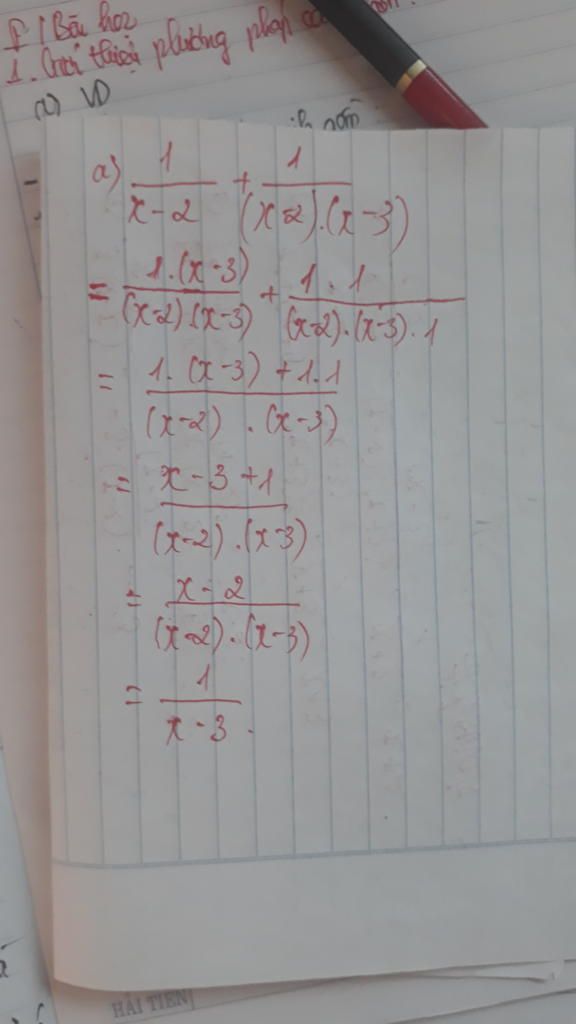 I / Bài học
1. Giới thiệu phương pháp
a) VD
a) 1/(x-2) + 1/((x-2).(x-3))
= 1.(x-3)/((x-2).(x-3)) + 1.1/((x-2).(x-3).1)
= (1.(x-3)+1.1)/((x-2).(x-3))
= (x-3+1)/((x-2).(x-3))
= (x-2)/((x-2).(x-3))
= 1/(x-3).
HẢI TIẾN